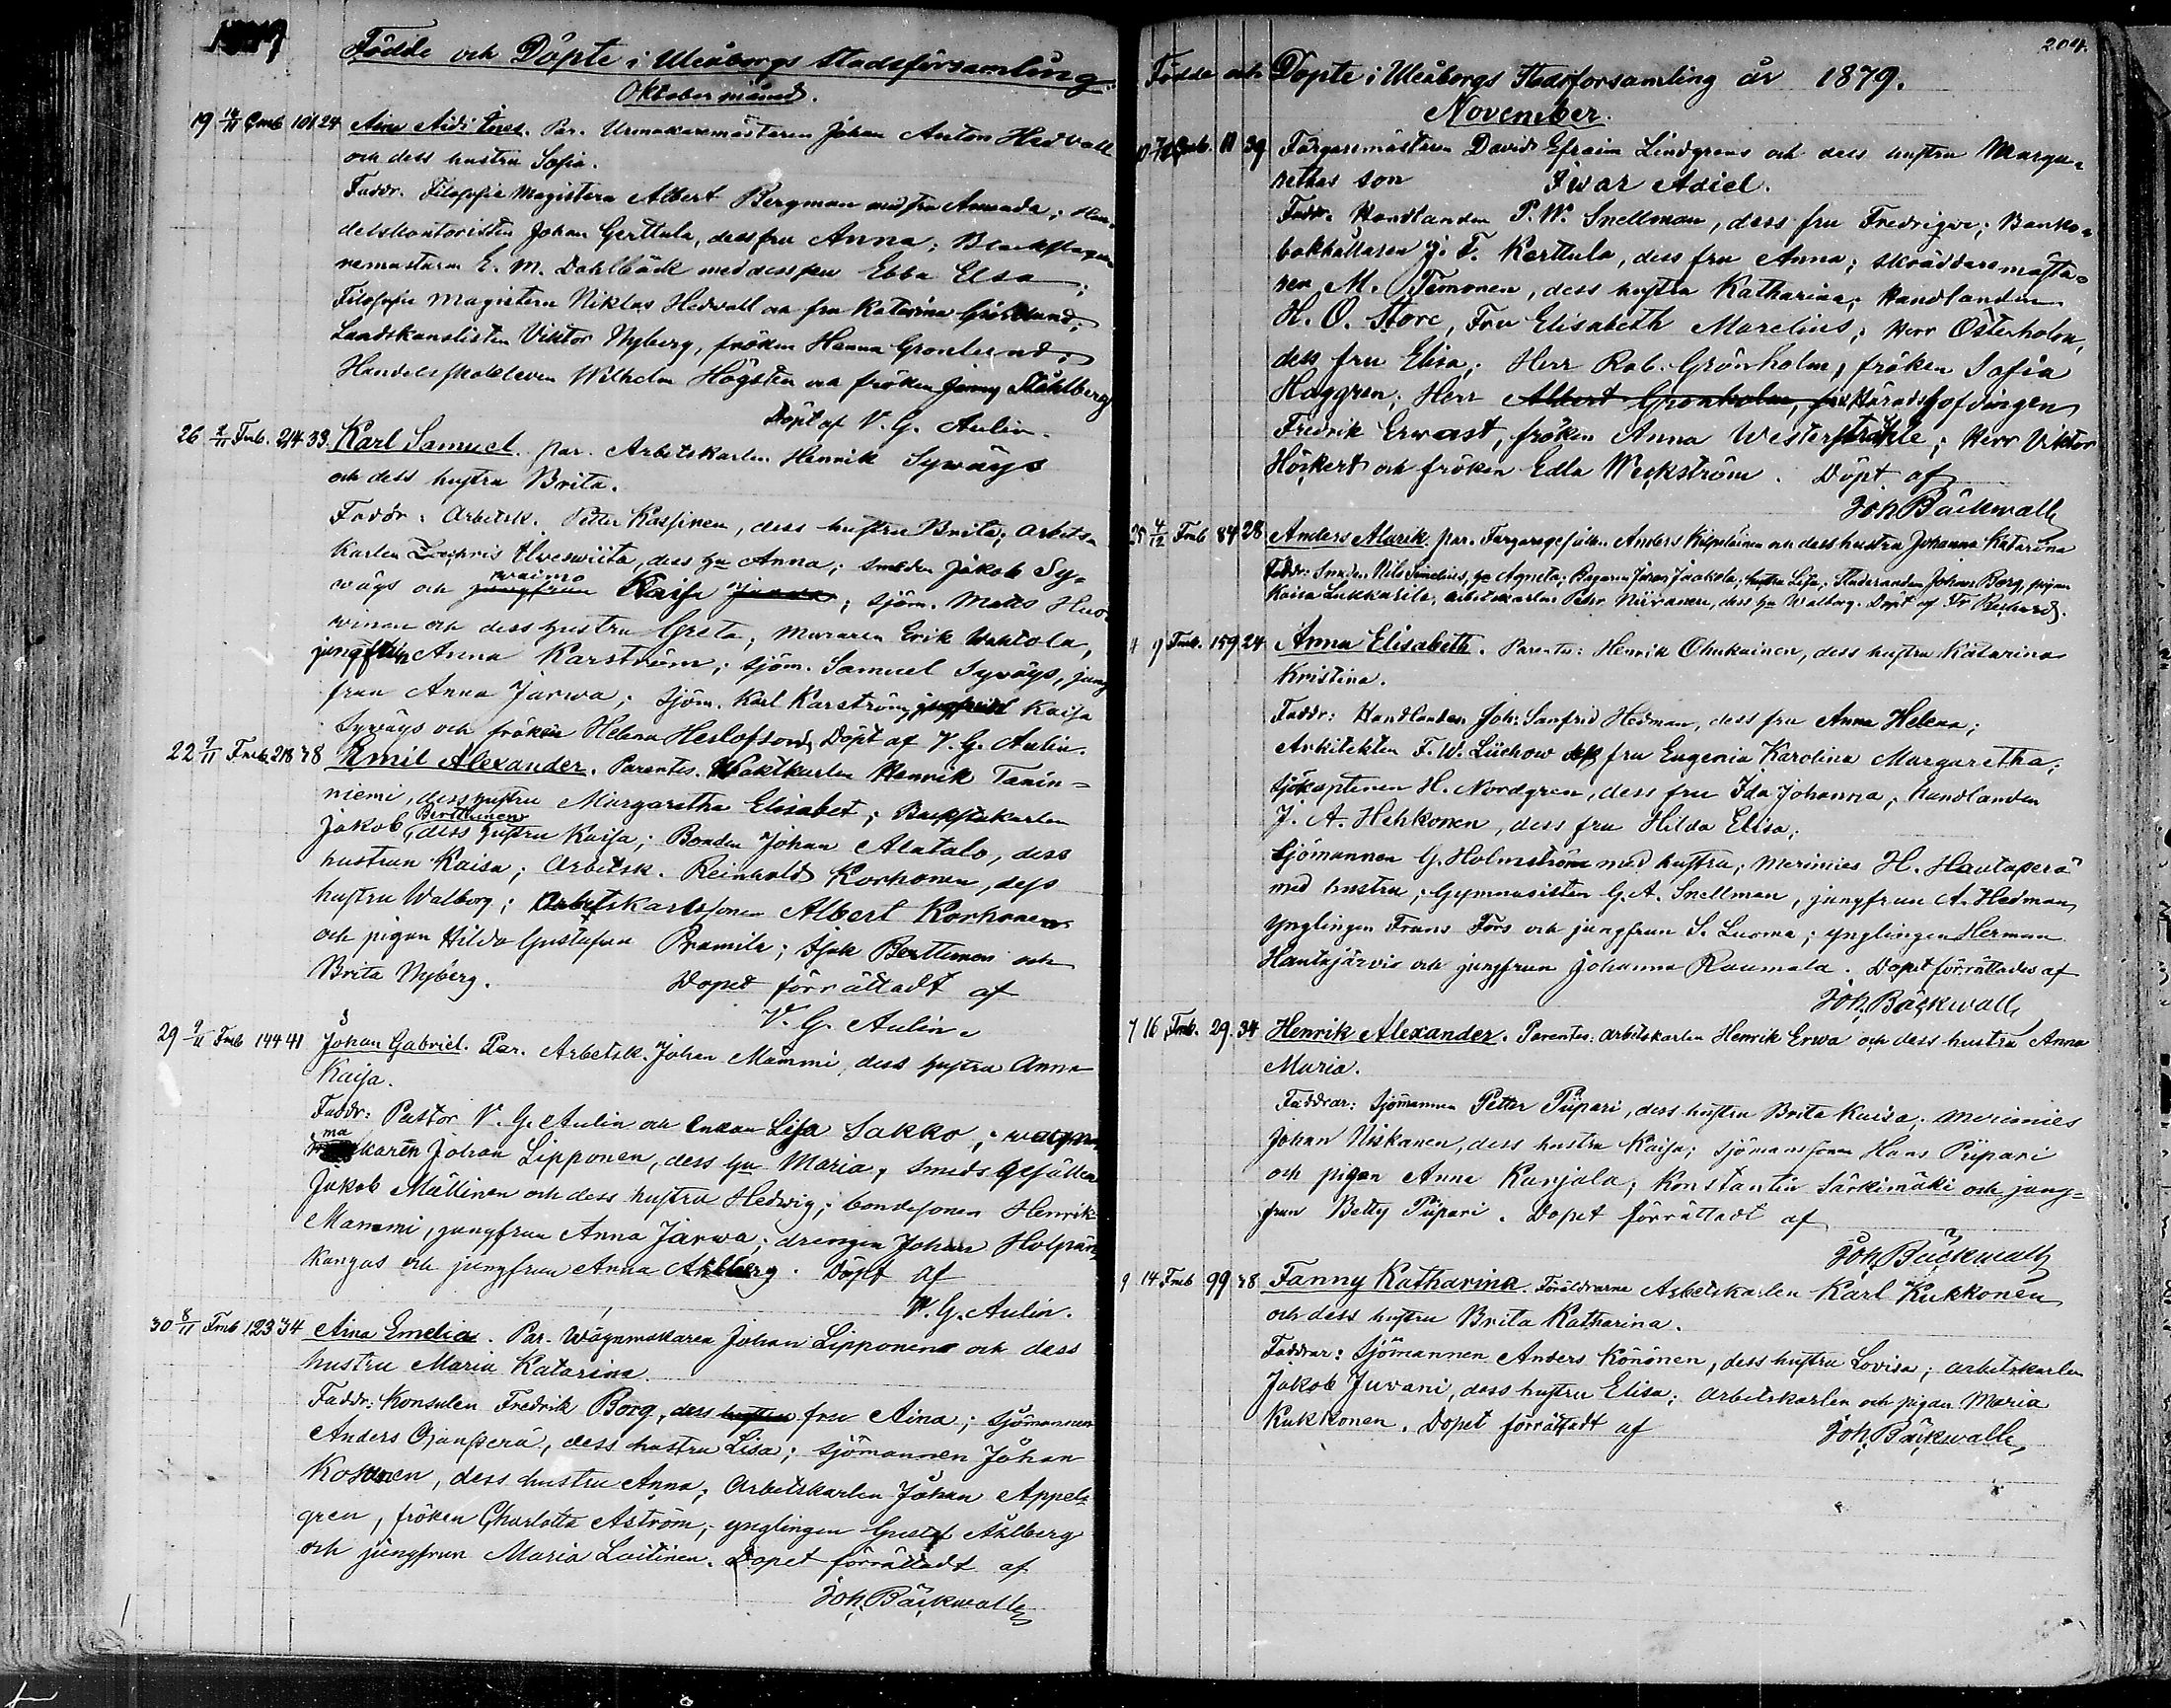 Födde och Döpte i Uleåborgs Stadsförsamling
Oktober månad.
19 Fmb 101 24 Aino Aidi Ines. Par. Urmakaremästaren Johan Anton Hedvall
och dess hustru Sofia.
Faddr. Filosofie Magistern Albert Bergman med fru Amanda; Han-
delskontoristen Johan Gerttula, dess fru Anna; Bleckslagare
remästaren E. M. Dahlbäck med dess fru Ebba Elsa;
Filosofie Magistern Niklas Hedvall och fru Katarina
Landtkanslisten Viktor Nyberg, fröken Hanna Gronlund;
Handelsskoleleven Wilhelm Högsten och fröken Jenny Ståhlberg
Döpt af V. G. Aulin.
26 2/11 Fmb. 214 33. Karl Samuel. par. Arbetskarlen Henrik Syväys
och dess hustru Brita.
Faddr. Arbetsk. Petter Kassinen, dess hustru Brita; Arbets-
karlen Zachris Ilveswiita, dess hu Anna; smeden Jakob Sy-
wäys och jungfrun waimo Kaisa Jarwa; sjöm. Matts Huo-
winen och dess hustru Greta; muraren Erik Wahtola,
jungfrun Anna Karström; sjöm. Samuel Syväys, jung
frun Anna Jarwa; sjöm. Karl Karström, Kaisa
Syväys och fröken Helena Herlofson Döpt af V. G. Aulin.
22 9/11 Fmb. 218 38 Emil Alexander. Parentes. Waktkarlen Henrik Tanin-
niemi, dess hustru Margaretha Elisabet; Backstukarlen
Jakob Berttunen, dess hustru Kaisa; Bonden Johan Alatalo, dess
hustrun Kaisa; Arbetsk. Reinhold Korhonen, dess
hustru Walborg; Arbetskarlssonen Albert Korhonen
och pigan Hilda Gustafva Pramila; Isak Berttunen och
Brita Nyberg. Dopet förrättadt af
V. G. Aulin.
29 9/11 Fmb 144 41 Johan Gabriel. Par. Arbetsk. Johan Mammi, dess hustru Anna
Kaisa.
Faddr: Pastor V. G. Aulin och enkan Lisa Sakko; wagn
makaren Johan Lipponen, dess hu Maria; Smeds Gesällen
Jakob Mällinen och dess hustru Hedwig; bondesonen Henrik
Mammi, jungfrun Anna Jarwa; drengen Johan
kangas och jungfrun Anna Ahlberg. Döpt af
V. G. Aulin.
30 8/11 Fmb 123 34 Aina Emelia. Par. Wagnmakaren Johan Lipponen och dess
hustru Maria Katarina
Faddr: Konsulen Fredrik Borg, dess hustru fru Aina; Sjömannen
Anders Ojanperä, dess hustru Lisa; sjömannen Johan
Kosonen, dess hustru Anna; Arbetskarlen Johan Appel-
gren, fröken Charlotta Aström; ynglingen Gustaf Åhlberg
och jungfrun Maria Laitinen. Dopet förrättadt af
Joh. Bäckwall
204.
Födde och Döpte i Uleåborgs Stadsforsamling år 1879.
November.
39 Fargaremästaren David Efraim Lindgrens och dess hustru Marga-
rethas son Iwar Adiel.
Faddr. Handlanden P. W. Snellman, dess fru Fredrique; Banko-
bokhållaren J. F. Kerttula, dess fru Anna; skräddaremästa-
ren M. Temonen, dess hustru Katharina; Handlanden
H. O. Store, Fru Elisabeth Marelius; Herr Österholm,
dess fru Elisa; Herr Rob. Grönholm, fröken Sofia
Haggren; Herr Albert Gronholm, Häradshöfdingen
Fredrik Erwast, fröken Anna Westerstråhle; Herr Viktor
Höckert och fröken Edla Weckström. Döpt af
Joh Bäckwall
25 4/12 Fmb 84 28 Anders Alarik par. Fargaregesällen Anders Kilpeläinen och dess hustru Johanna Katarina
Faddr: Smeden Nils Simelius, hu Agneta; Bagaren Johan Jaakola, hustru Lisa; Studeranden Johan Borg, pigan
Kaisa Lukkarila, arbetskarlen Petter Niiranen, dess hu Walborg. Döpt af Fr
9 Fmb. 159 24 Anna Elisabeth. Parentes: Henrik Ohukainen, dess hustru Katarina
Kristina.
Faddr: Handlanden Joh. Sanfrid Hedman, dess fru Anna Helena;
Arkitekten F. W. Lüchow dess fru Eugenia Karolina Margaretha;
Sjökaptenen H. Nordgren, dess fru Ida Johanna; Handlanden
J. A. Hehkonen, dess fru Hilda Elisa;
Sjömannen G. Holmström med hustru; Merimies H. Hautaperä
med hustru; Gymnasisten G. A. Snellman, jungfrun A. Hedman
Ynglingen Frans Fors och jungfrun S. Luoma; ynglingen Herman
Hautajärvi och jungfrun Johanna Raumala. Dopet förrättades af
Joh. Bäckwall
7 16 Fmb. 29. 34 Henrik Alexander. Parentes: Arbetskarlen Henrik Erwa och dess hustru Anna
Maria.
Faddrar: Sjömannen Petter Piipari, dess hustru Brita Kaisa; Merimies
Johan Niskanen, dess hustru Kaisa; Sjömanssonen Hans Piipari
och pigan Anna Karjala; Konstantin Särkimäki och jung-
frun Betty Piipari. Dopet förrättadt af
Joh Bäckwall
9 14 Fmb 99 38 Fanny Katharina. Föräldrarne Arbetskarlen Karl Kukkonen
och dess hustru Brita Katharina.
Faddrar: Sjömannen Anders Könönen, dess hustru Lovisa; arbetskarlen
Jakob Juvani, dess hustru Elisa; Arbetskarlen och pigan Maria
Kukkonen. Dopet förrättadt af Joh. Bäckwall